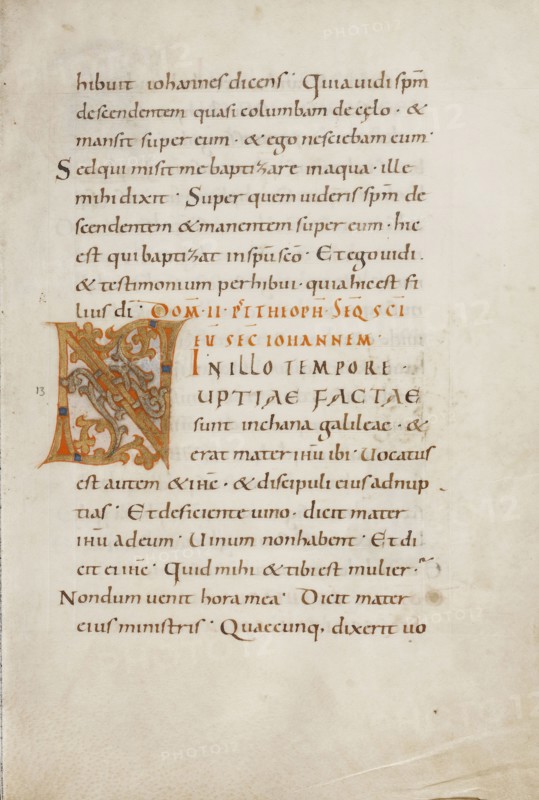 hibuit iohannes dicens· Quia uidi sp̅m
descendentem quasi columbam de cęlo · &
mansit super eum · & ego nesciebam eum·
Sed qui misit me baptizare in aqua · ille
mihi dixit · Super quem uideris sp̅m de
scendentem & manentem super eum · hic
est qui baptizat in sp̅u sc̅o · Et ego uidi.
& testimonium perhibui · quia hic est fi
lius di̅ · DOM̅ · II · P̅T THEOPH̅ · SEQ̅ SC̅I
EU̅ SEC̅ IOHANNEM ·
IN ILLO TEMPORE ·
13
NUPTIAE FACTAE
sunt in chana galileae · &
erat mater ih̅u ibi · Uocatus
est autem & ih̅c · & discipuli eius ad nup
tias · Et deficiente uino · dicit mater
ih̅u ad eum · Uinum non habent · Et di
cit ei ih̅c · Quid mihi & tibi est mulier ·
Nondum uenit hora mea · Dicit mater
eius ministris · Quaecunq, dixerit uo
PHOTO12